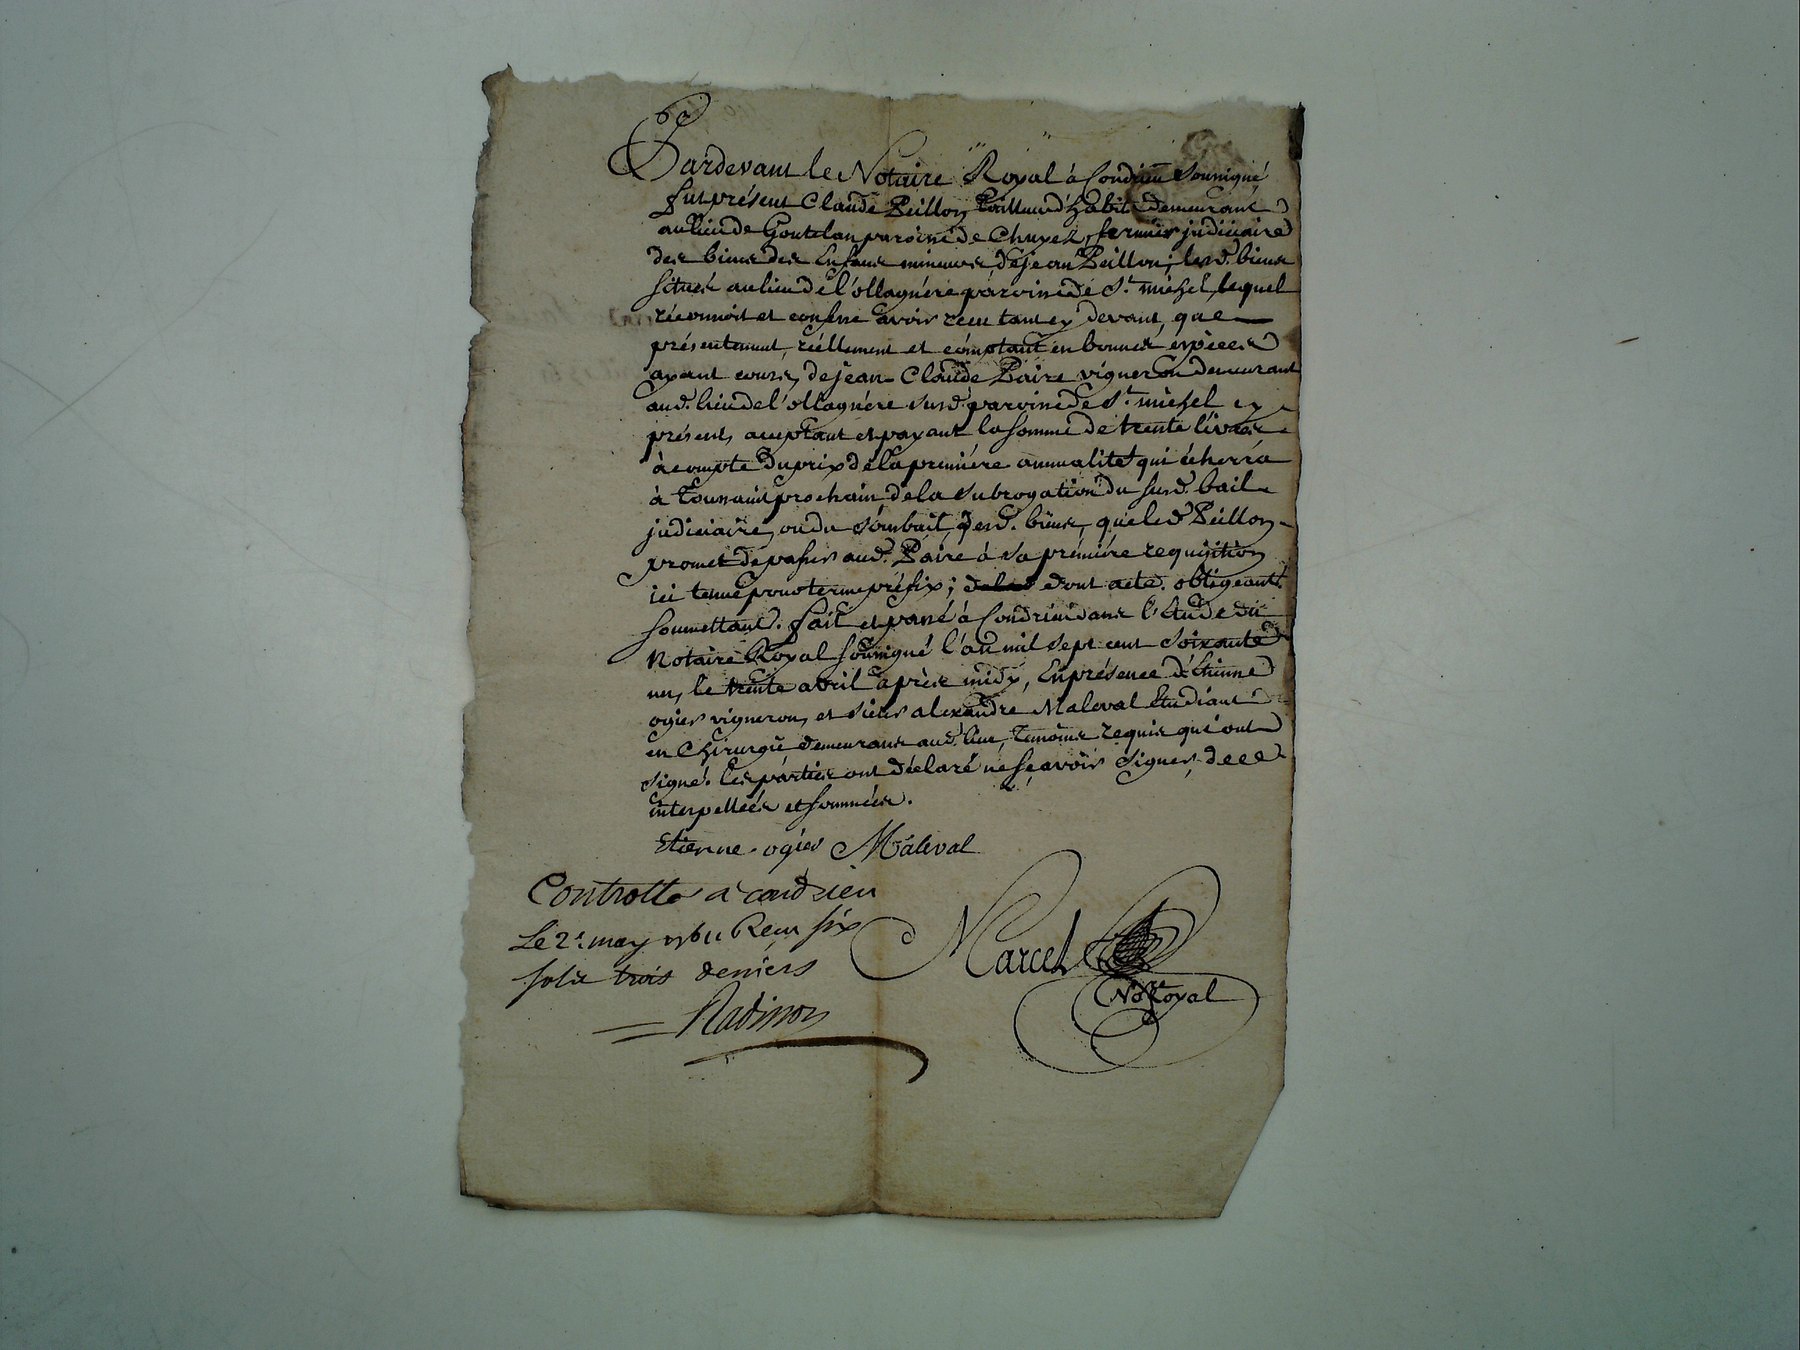 Pardevant le Notaire Royal à Condrieu Soussigné
fut présent Claude Peillon Tailleur d'habits demeurant
au lieu de Goutelan paroisse de Chuyer, fermier judiciaire
des biens des Enfans mineurs de Jean Peillon; lesd. biens
situés au lieu de l'ollagnére paroisse de St. michel, lequel
réconnoit et confesse avoir recu tant cy devant, que
présentement, réellement et comptant en bonnes espèces
ayant cours, de jean Claude Paire vigneron demeurant
aud. lieu de l'ollagnére susd. paroisse de St. michel cy
présent, acceptant et payant la somme de trente livres
à compte du prix de la premiére annualité qui écherra
à Toussaint prochain de la subrogation du susd. bail
judiciaire, ou du sousbail desd. biens, que led. Peillon
promet de passer aud. Paire à sa prémiére requisition
ici tenue pour terme préfix; dont acte. obligeant.
soumettant. fait et passé à Condrieu dans l'Etude du
Notaire Royal soussigné l'an mil sept cent soixante
un, le trente avril après midy, En présence d'Etienne
ogier vigneron, et sieur alexandre Maleval Etudiant
en Chirurgie demeurans aud. lieu, Temoins requis qui ont
signé. les parties ont déclaré ne sçavoir signer, de ce
interpellées et sommées.
Etienne ogier Maleval
Controllé a condrieu
Le 2e. may 1761 Reçu six
sols trois deniers
Marcel
Nore. Royal